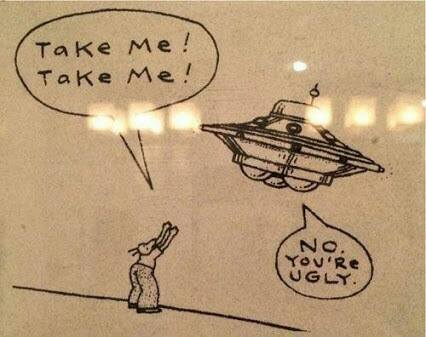 Take Me!
Take Me!
NO.
YOU'Re
UGLY.